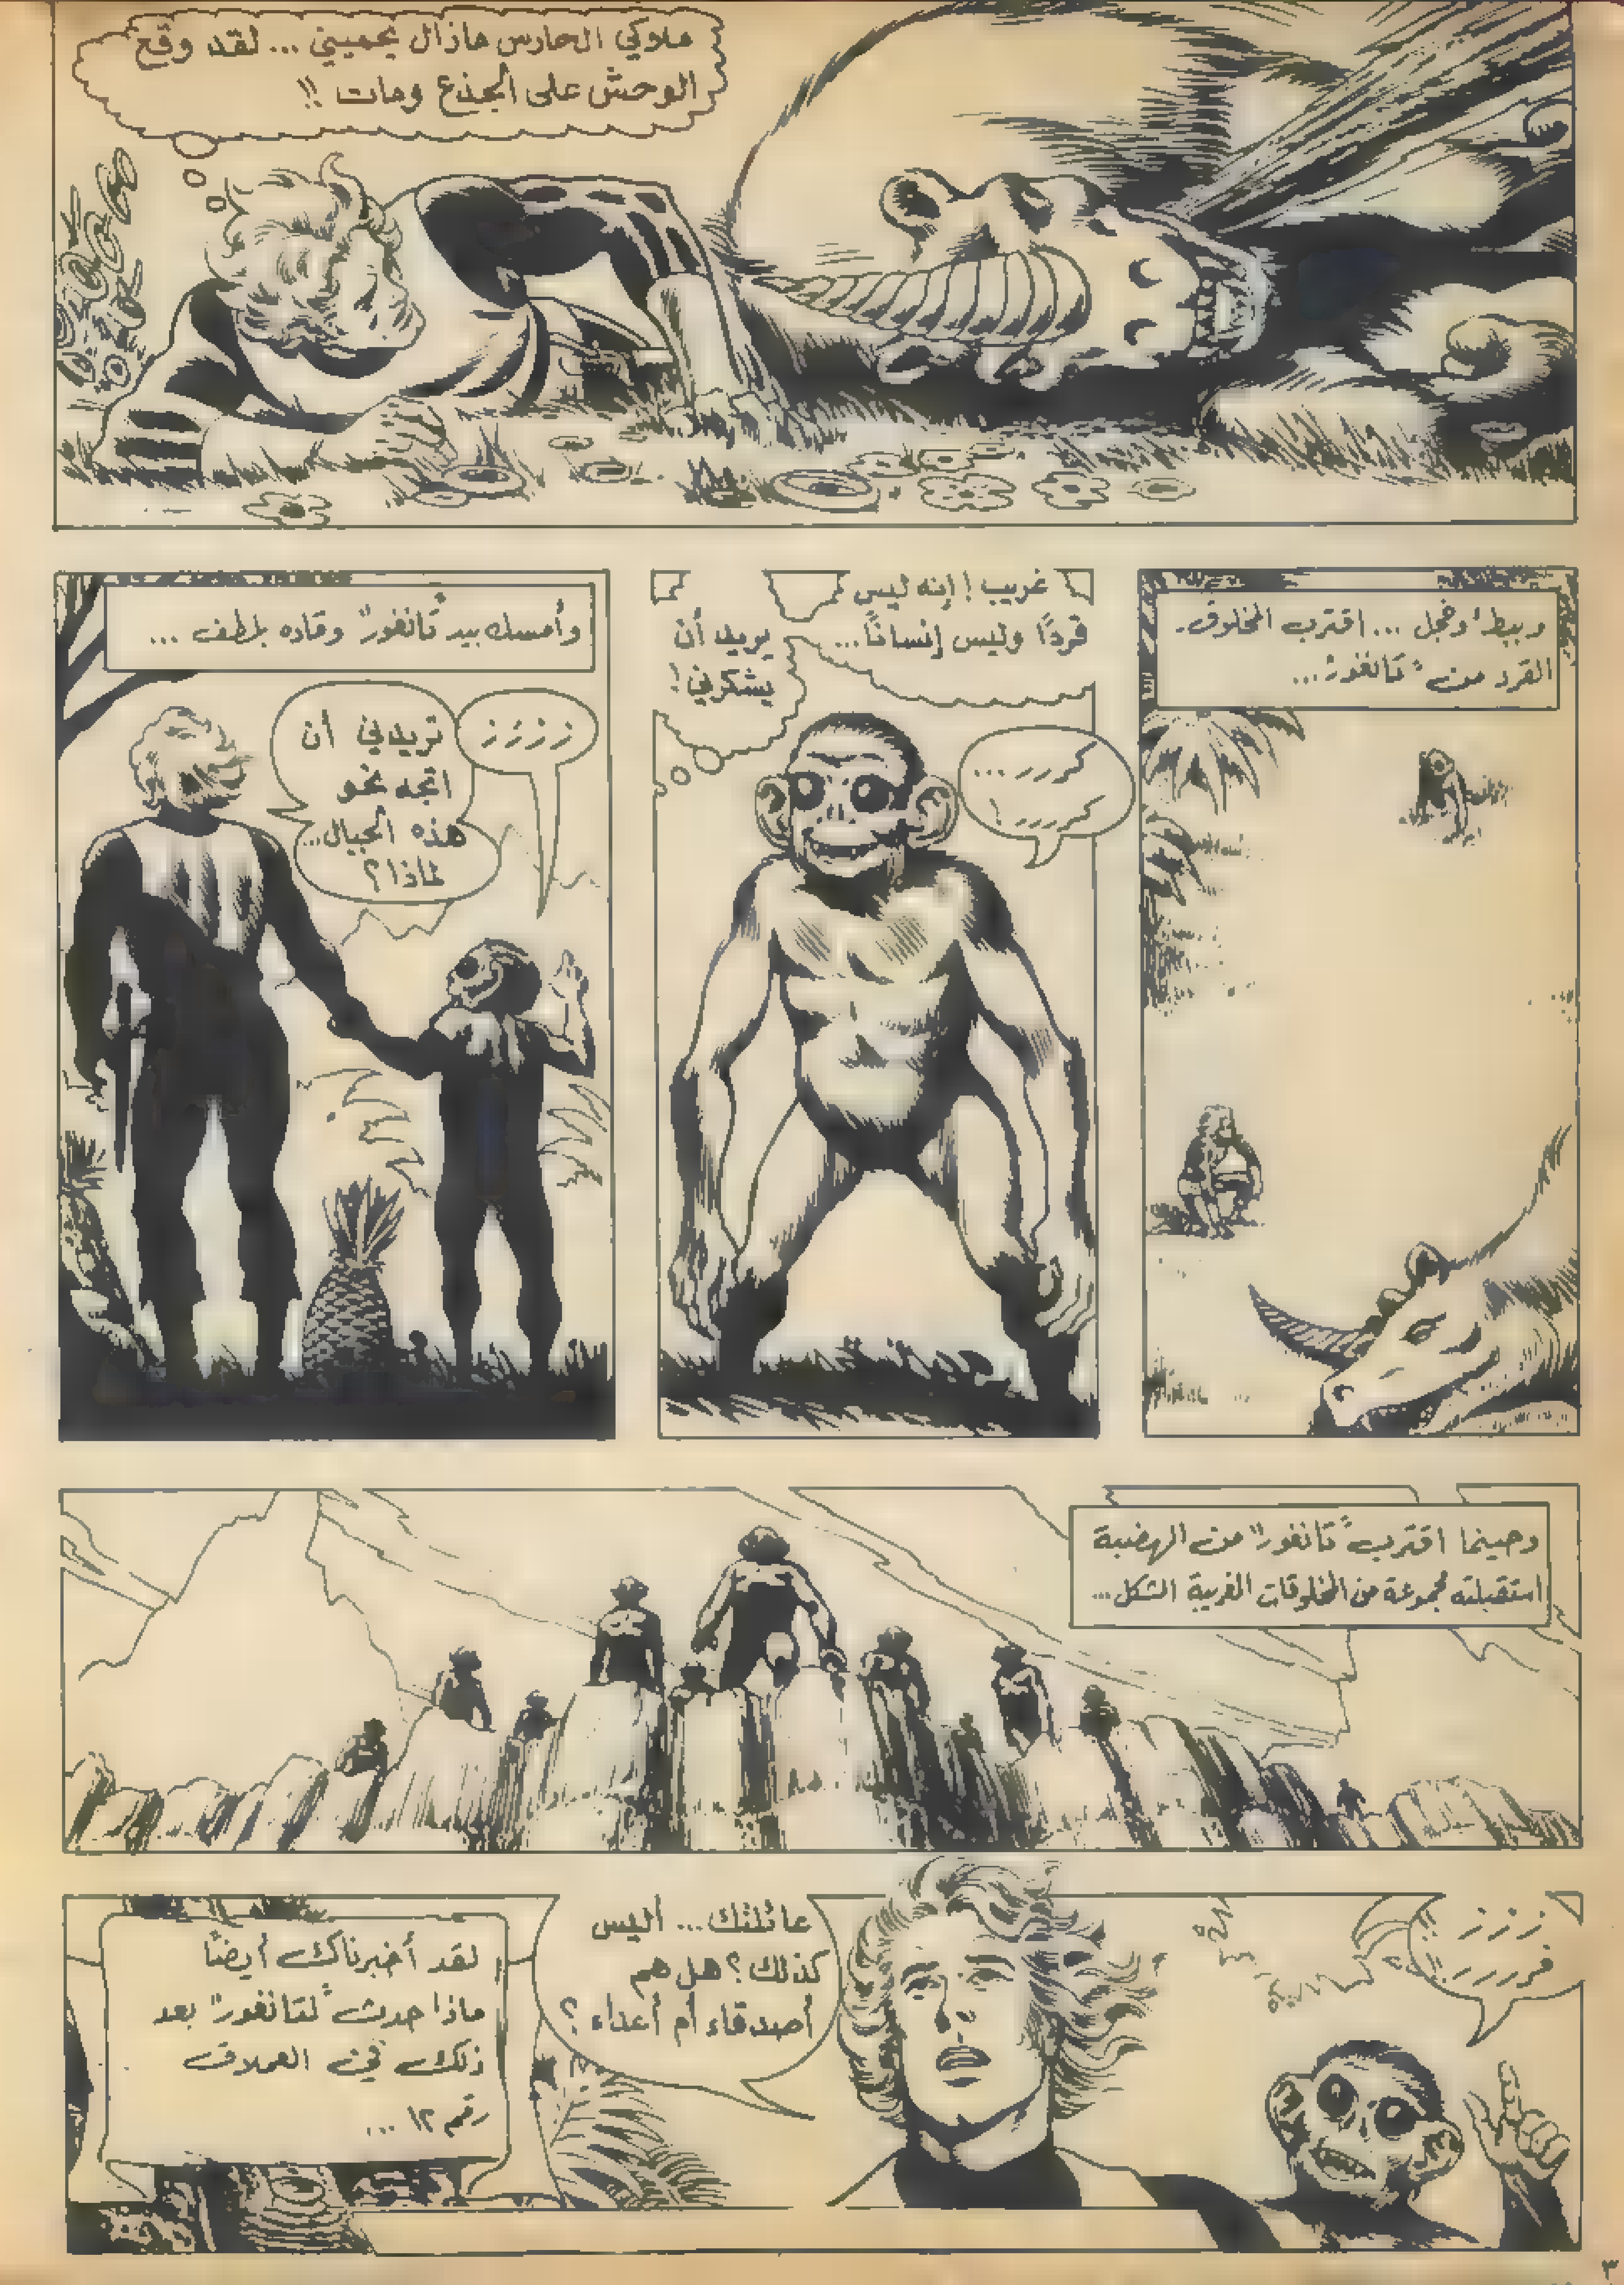 ملاكي الحارس مازال يحميني ... لقد وقع
الوحش على الجذع ومات !!
وببطء وخجل ... اقترب المخلوق.
القرد من "تانغور" ...
غريب ! إنه ليس
قردًا وليس إنسانًا ...
يريد أن
يشكرني !
كررر ...
كرررر !
وأمسك بيد "تانغور" وقاده بلطف ...
زززز
تريدني أن
اتجه نحو
هذه الجبال ...
لماذا ؟
وحينما اقترب "تانغور" من الهضبة
استقبلته مجموعة من المخلوقات الغريبة الشكل ...
ززز !!
فرررر !!
عائلتك ... أليس
كذلك ؟ هل هم
أصدقاء أم أعداء ؟
لقد أخبرناك أيضًا
ماذا حدث "لتانغور" بعد
ذلك في العملاق
رقم ١٢ ...
٣